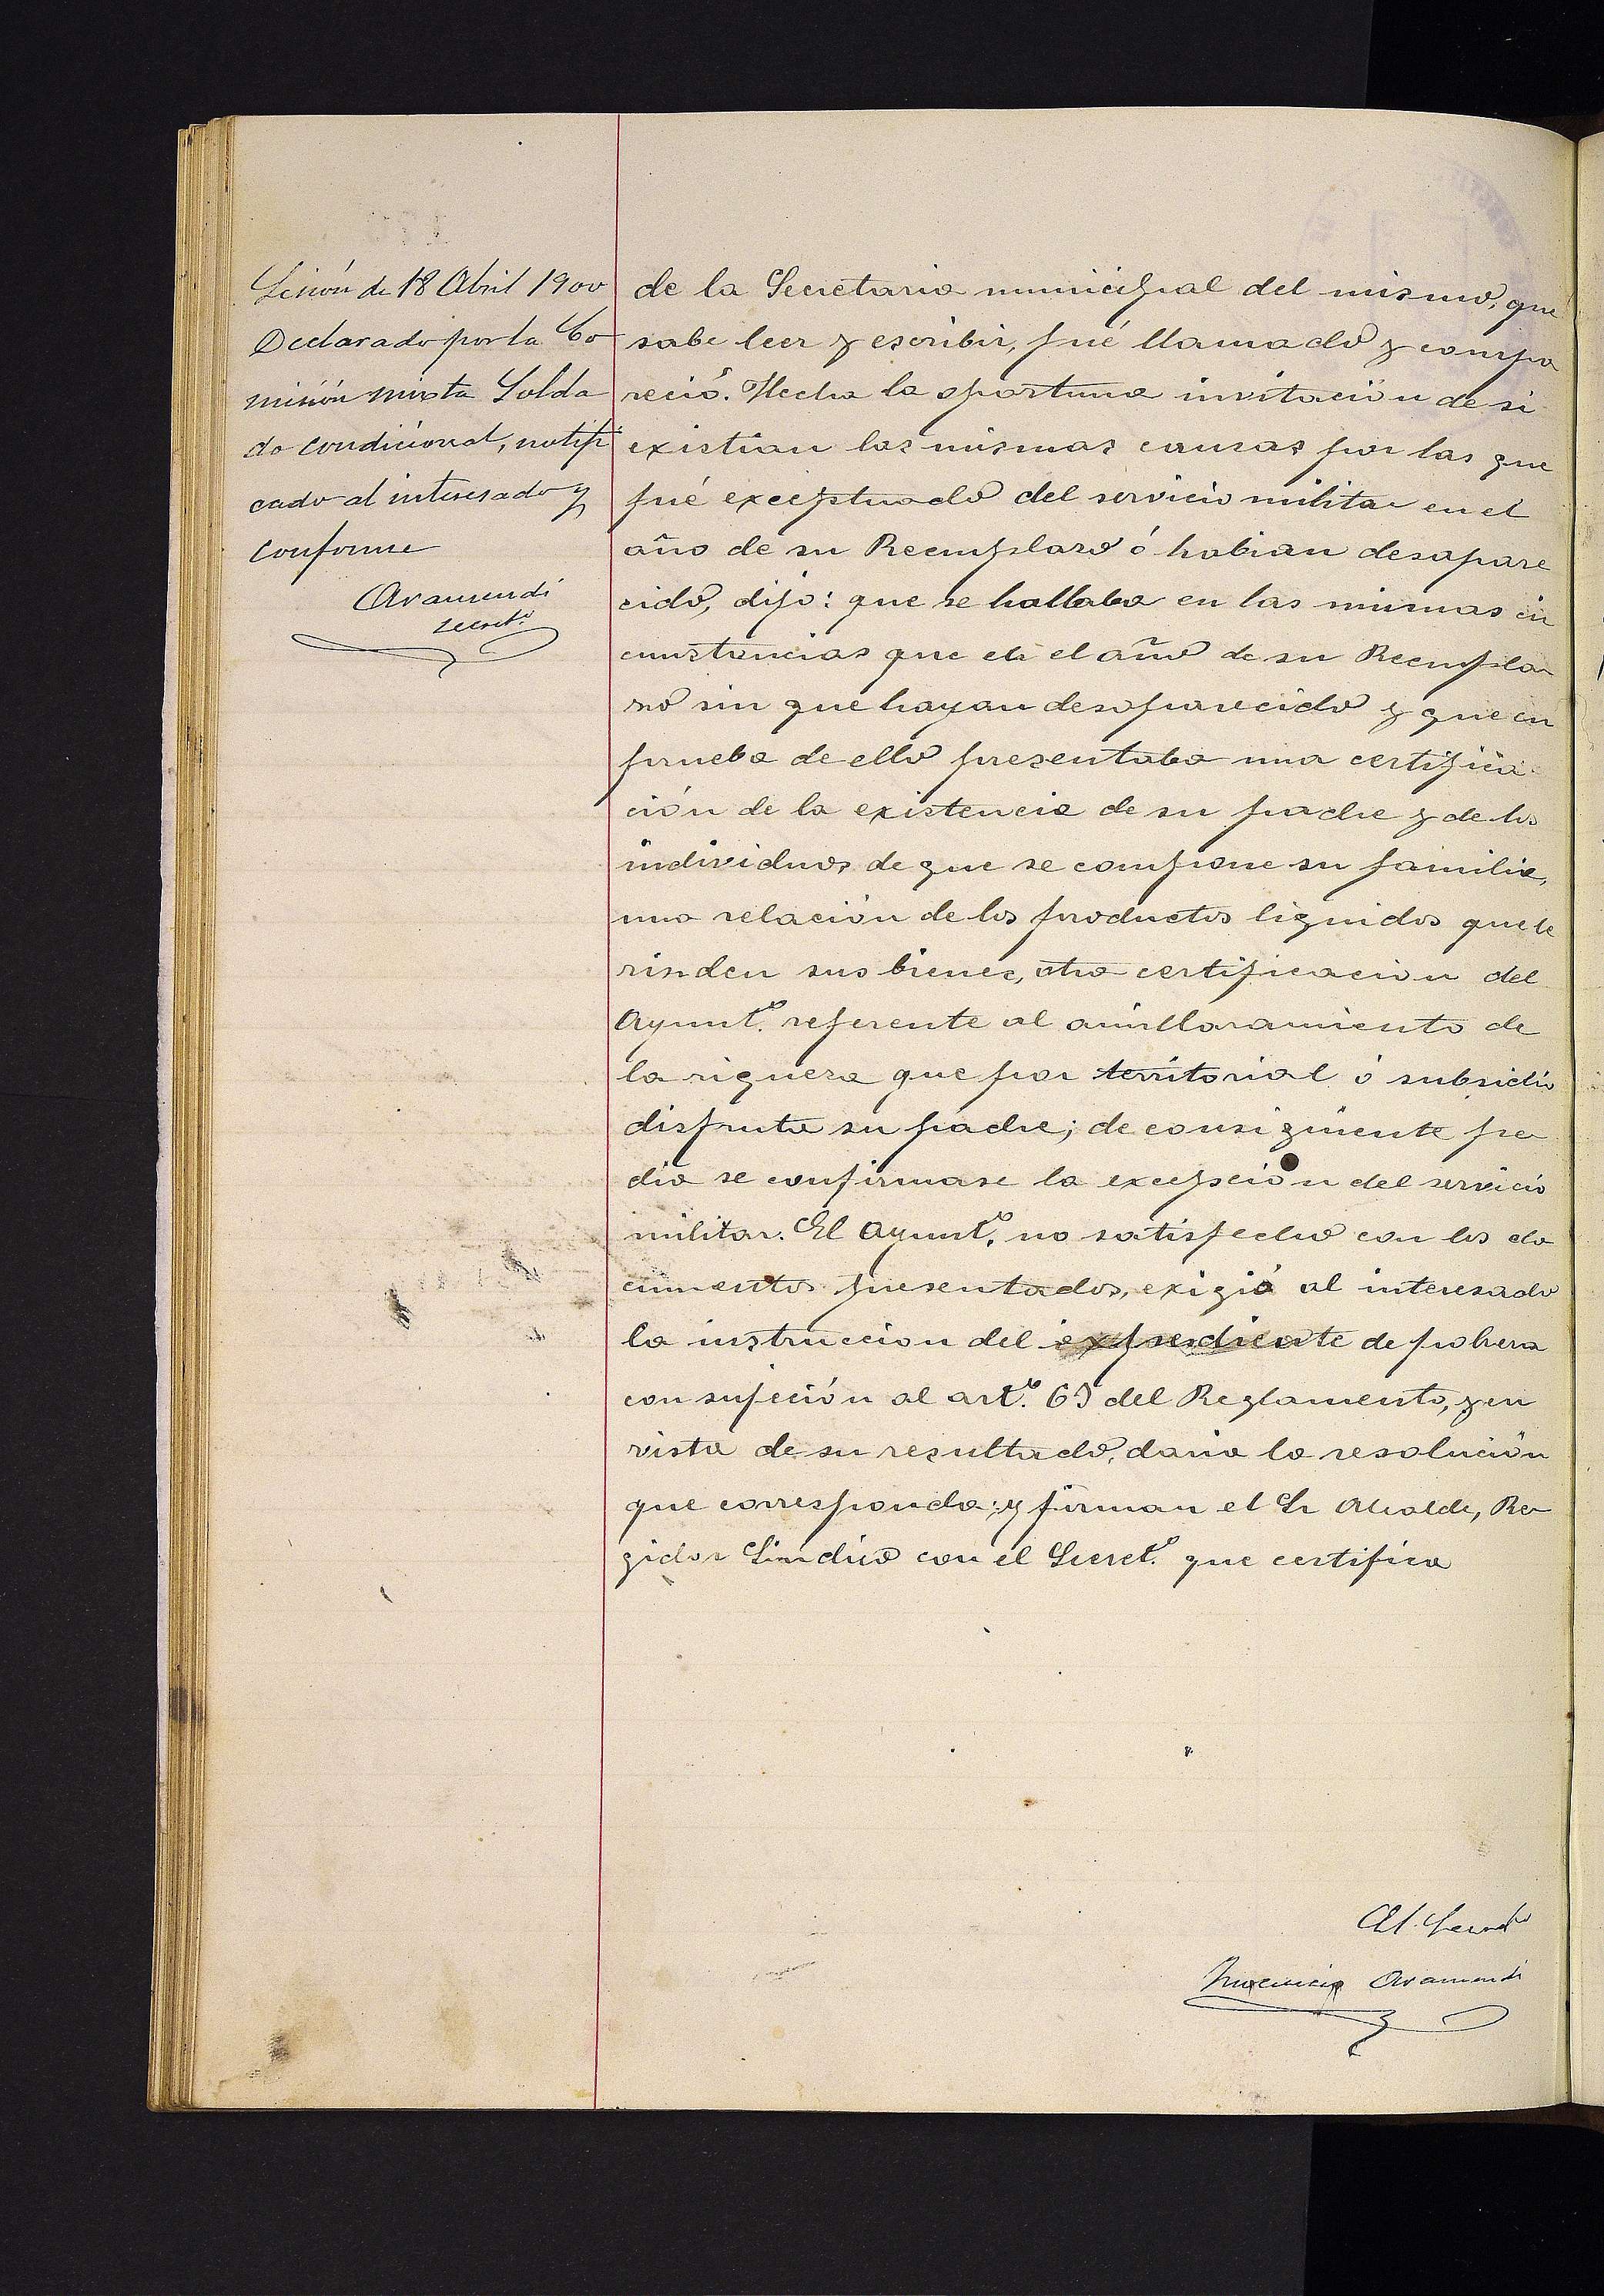 Sesión de 18 Abril 1900
Declarado por la Co
misión mixta Solda
do condicional, notifi
cado al interesado y
conforme
Aramendi
secret.º
de la Secretaria municipal del mismo, que
sabe leer y escribir, fué llamado y compa
reció. Hecha la oportuna invitación de si
existian las mismas causas por las que
fué exceptuado del servicio militar en el
año de su Reemplazo ó habian desapare
cido, dijo: que se hallaba en las mismas cir
cunstancias que en el año de su Reempla
zo sin que hayan desaparecido y que en
prueba de ello presentaba una certifica
ción de la existencia de su padre y de los
individuos de que se compone su familia,
una relación de los productos liquidos que le
rinden sus bienes, otra certificacion del
Ayunt.º referente al amillaramiento de
la riqueza que por territorial ó subsidio
disfruta su padre; de consiguiente pe
dia se confirmase la excepción del servicio
militar. El Ayunt.º no satisfecho con los do
cumentos presentados, exigió al interesado
la instruccion del expediente de pobreza
con sujeción al art.º 63 del Reglamento, y en
vista de su resultado, daria la resolución
que corresponda; y firman el Sr Alcalde, Re
gidor Sindico con el Secret.º que certifica
El Secretº
Aramendi